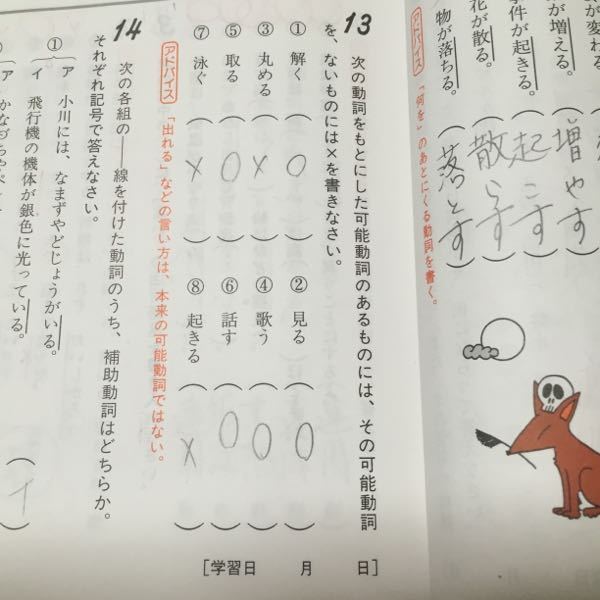 が変わる
が増える。
増やす
事件が起きる。
起こす
花が散る。
散らす
物が落ちる。
落とす
アドバイス 「何を」のあとにくる動詞を書く。
13 次の動詞をもとにした可能動詞のあるものには、その可能動詞
を、ないものには×を書きなさい。
① 解く (○)
② 見る (○)
③ 丸める (×)
④ 歌う (○)
⑤ 取る (○)
⑥ 話す (○)
⑦ 泳ぐ (×)
⑧ 起きる (×)
アドバイス 「出れる」などの言い方は、本来の可能動詞ではない。
14 次の各組の——線を付けた動詞のうち、補助動詞はどちらか。
それぞれ記号で答えなさい。
① ア 小川には、なまずやどじょうがいる。
イ 飛行機の機体が銀色に光っている。
(イ)
[学習日 月 日]